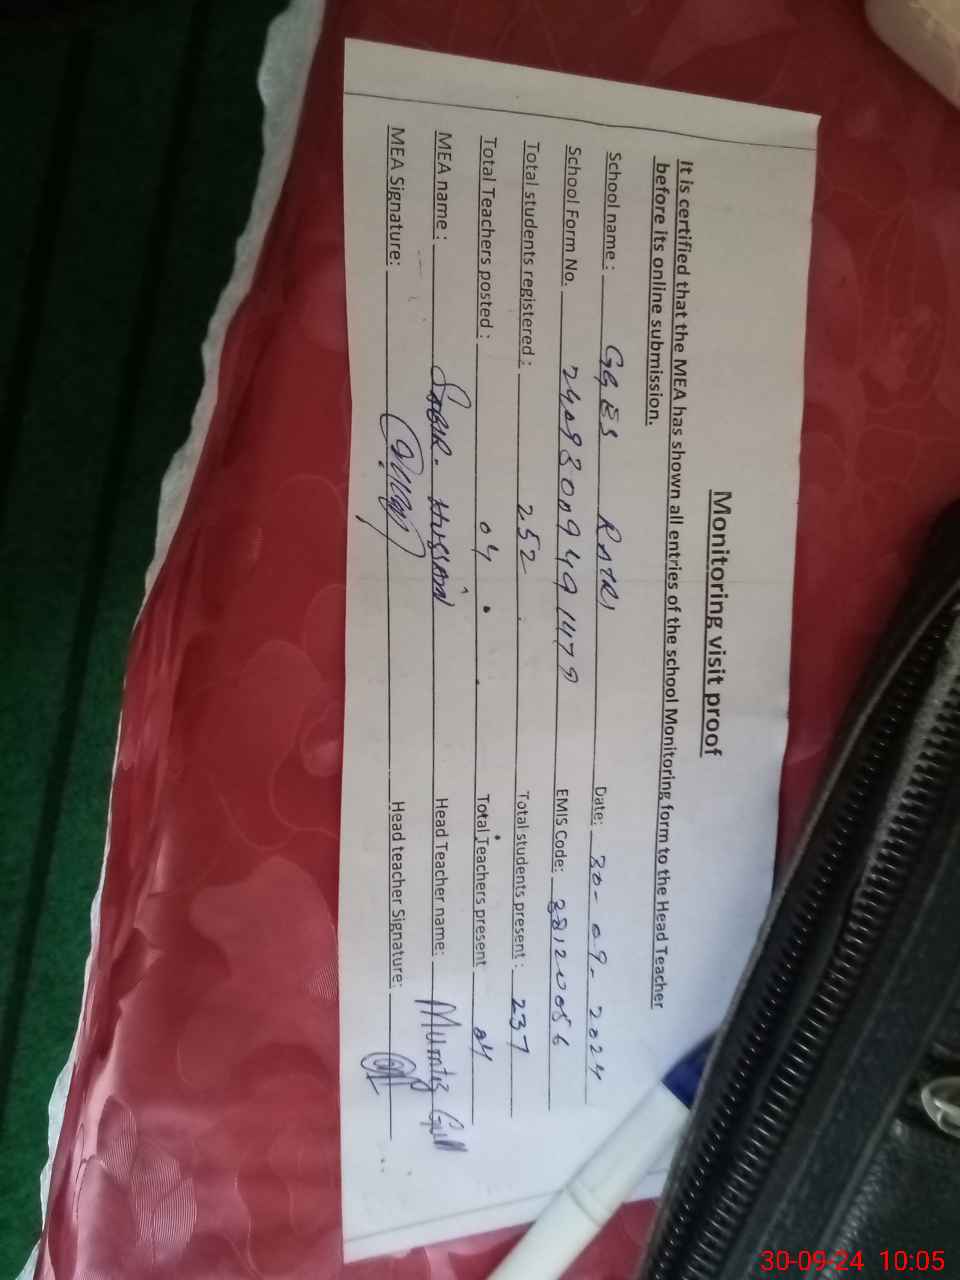 Monitoring visit proof
It is certified that the MEA has shown all entries of the school Monitoring form to the Head Teacher
before its online submission.
School name : GGES RATRI Date: 30-09-2024
School Form No. EMIS Code:
Total students registered : 252 Total students present : 237
Total Teachers posted : 04 Total Teachers present 04
MEA name : SABIR HUSSAIN Head Teacher name: Mumtaz Gull
MEA Signature: Head teacher Signature:
30-09-24 10:05